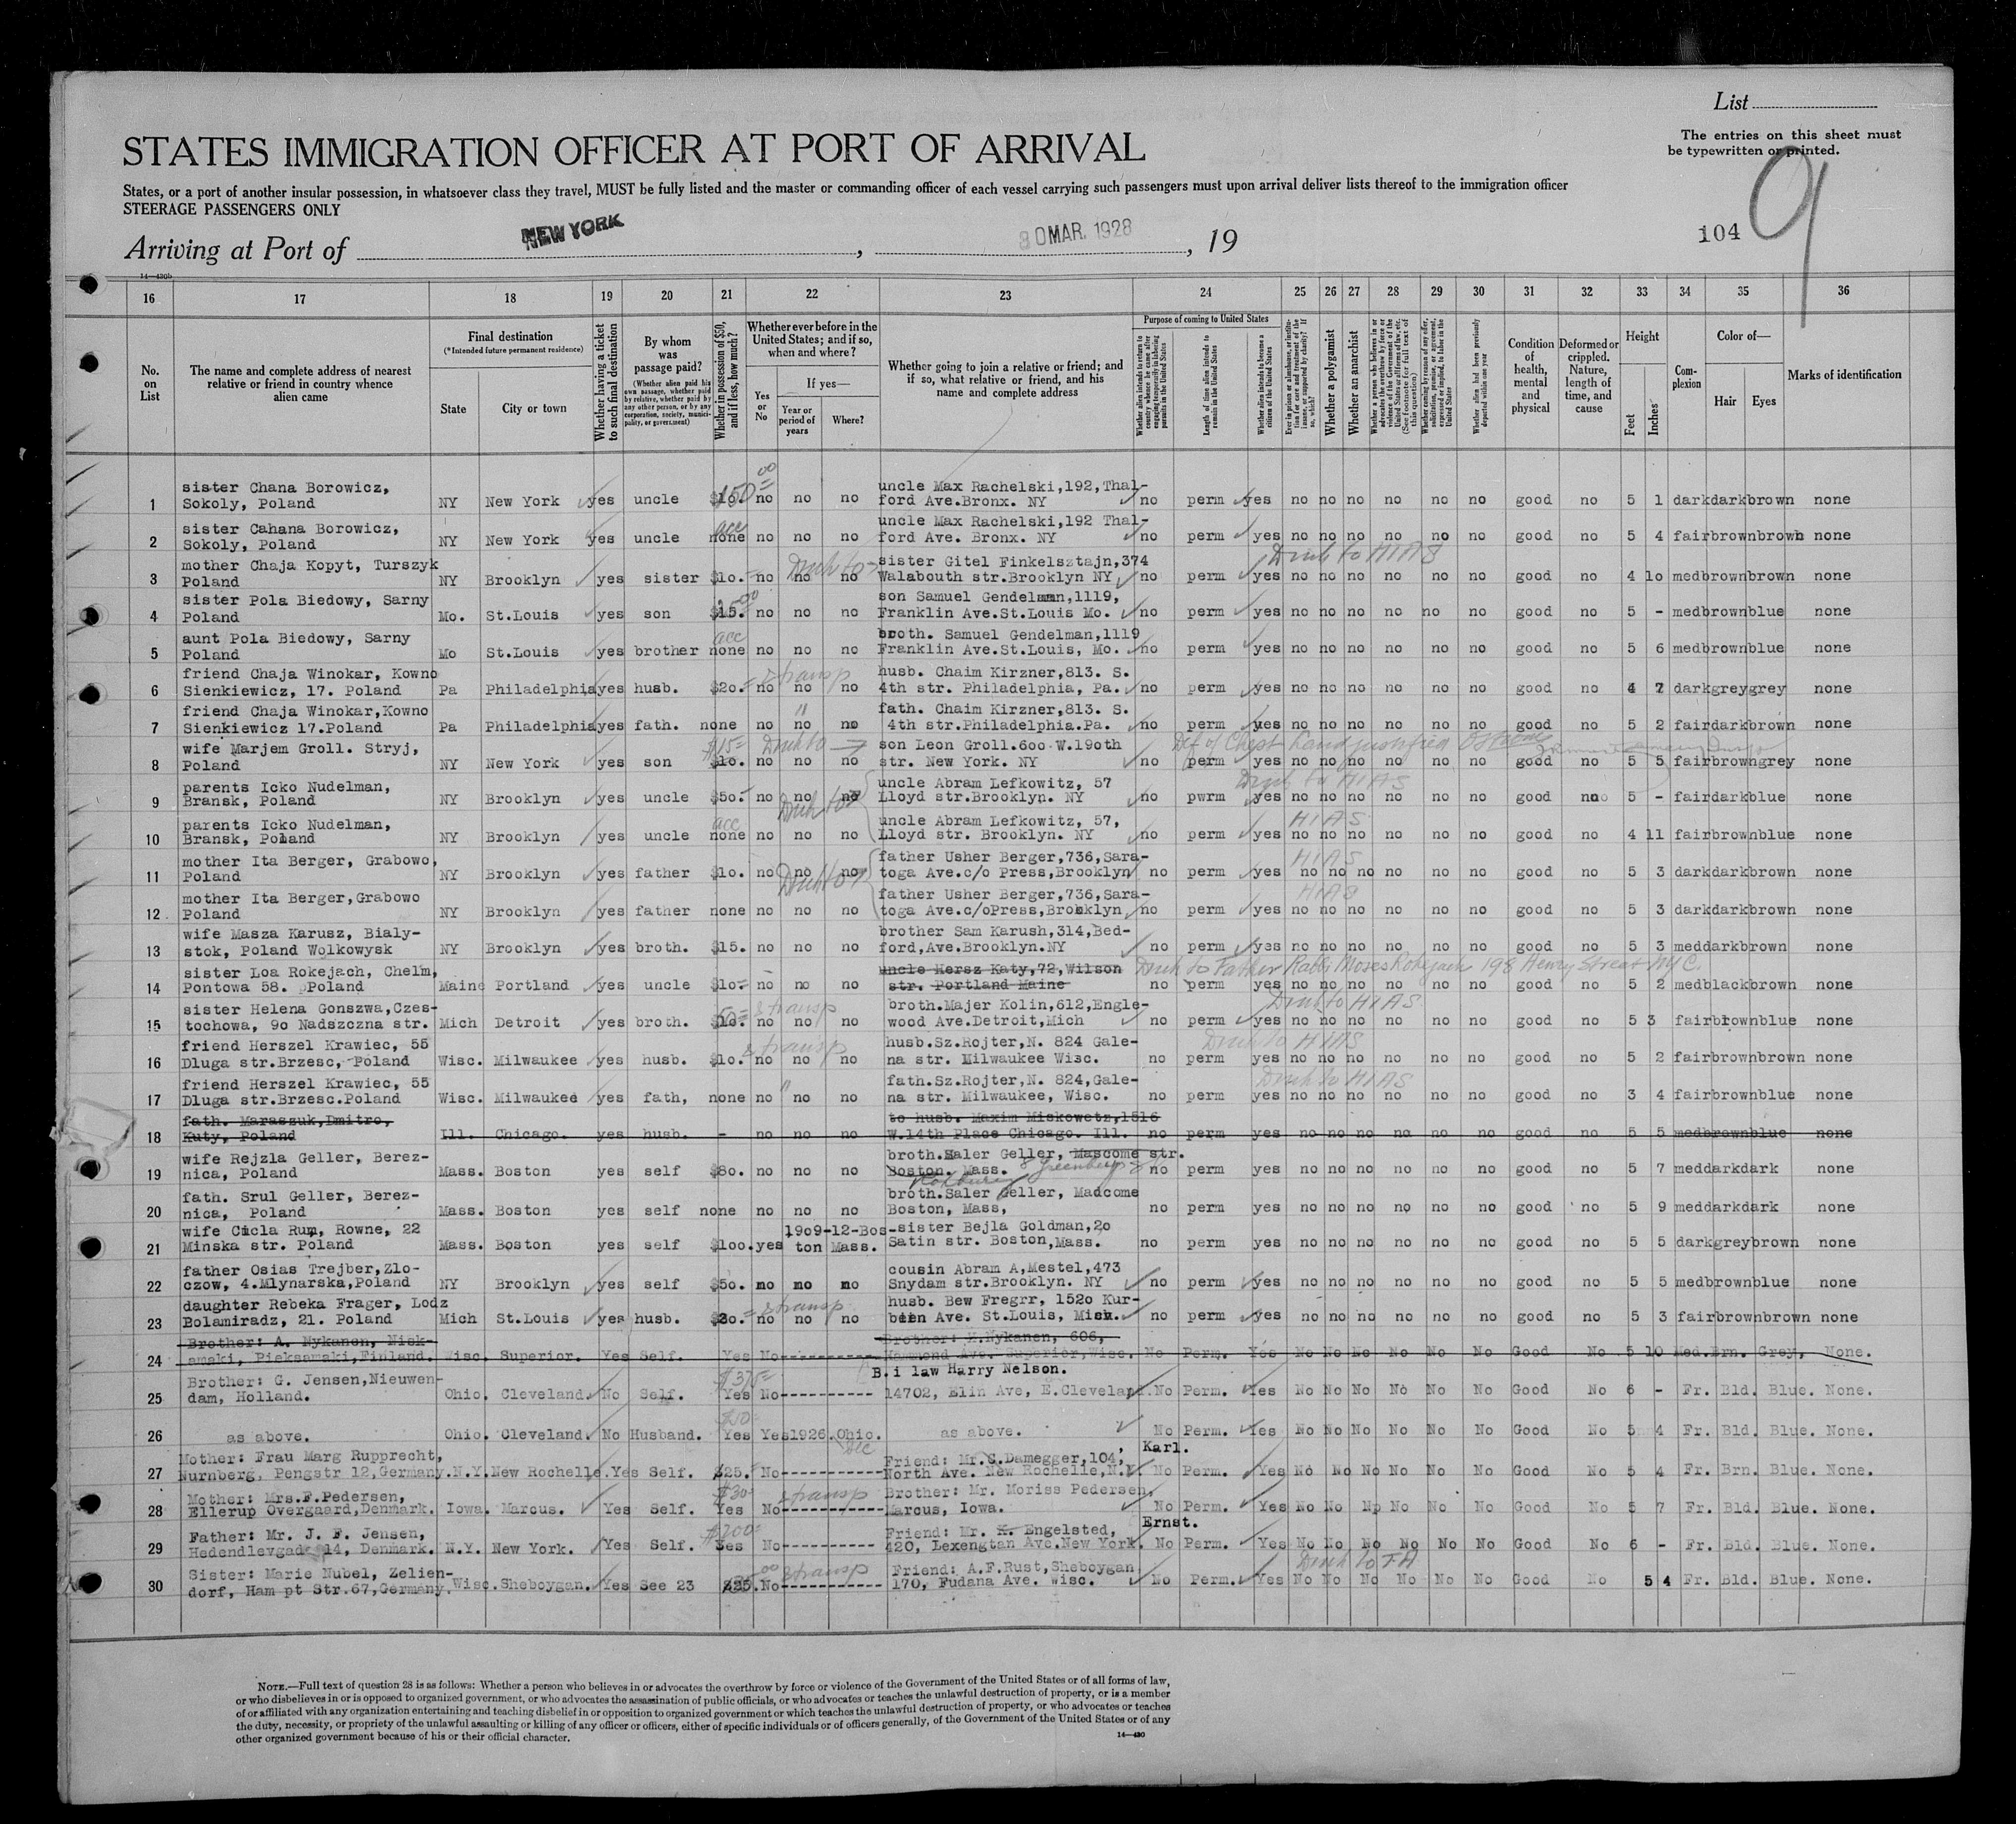 List
The entries on this sheet must
be typewritten or printed.
STATES IMMIGRATION OFFICER AT PORT OF ARRIVAL
States, or a port of another insular possession, in whatsoever class they travel, MUST be fully listed and the master or commanding officer of each vessel carrying such passengers must upon arrival deliver lists thereof to the immigration officer
STEERAGE PASSENGERS ONLY
Arriving at Port of NEW YORK , 30 MAR. 1928 , 19
104 9
14—430b
16 17 18 19 20 21 22 23 24 25 26 27 28 29 30 31 32 33 34 35 36
No. on List
The name and complete address of nearest relative or friend in country whence alien came
Final destination
(*Intended future permanent residence)
State City or town
Whether having a ticket to such final destination
By whom was passage paid?
(Whether alien paid his own passage, whether paid by relative, whether paid by any other person, or by any corporation, society, municipality, or government)
Whether in possession of $50, and if less, how much?
Whether ever before in the United States; and if so, when and where?
Yes or No
If yes—
Year or period of years Where?
Whether going to join a relative or friend; and if so, what relative or friend, and his name and complete address
Purpose of coming to United States
Length of time alien intends to remain in the United States
Whether alien intends to become a citizen of the United States
Whether a polygamist
Whether an anarchist
Condition of health, mental and physical
Deformed or crippled. Nature, length of time, and cause
Height
Feet Inches
Complexion
Color of—
Hair Eyes
Marks of identification
1 sister Chana Borowicz, Sokoly, Poland NY New York yes uncle $10. 150 00 no no no uncle Max Rachelski,192,Thalford Ave.Bronx. NY no perm yes no no no no no no good no 5 1 dark dark brown none
2 sister Cahana Borowicz, Sokoly, Poland NY New York yes uncle none acc no no no uncle Max Rachelski,192 Thalford Ave. Bronx. NY no perm yes no no no no no no good no 5 4 fair brown brown none
3 mother Chaja Kopyt, Turszyk Poland NY Brooklyn yes sister $10. no no no sister Gitel Finkelsztajn,374 Walabouth str.Brooklyn NY no perm yes no no no no no no good no 4 10 med brown brown none
4 sister Pola Biedowy, Sarny Poland Mo. St.Louis yes son $15. no no no son Samuel Gendelman,1119, Franklin Ave.St.Louis Mo. no perm yes no no no no no no good no 5 - med brown blue none
5 aunt Pola Biedowy, Sarny Poland Mo St.Louis yes brother none acc no no no broth. Samuel Gendelman,1119 Franklin Ave.St.Louis, Mo. no perm yes no no no no no no good no 5 6 med brown blue none
6 friend Chaja Winokar, Kowno Sienkiewicz, 17. Poland Pa Philadelphia yes husb. $20. & transp no no no husb. Chaim Kirzner,813. S. 4th str. Philadelphia, Pa. no perm yes no no no no no no good no 4 7 dark grey grey none
7 friend Chaja Winokar,Kowno Sienkiewicz 17.Poland Pa Philadelphia yes fath. none no " no no fath. Chaim Kirzner,813. S. 4th str.Philadelphia.Pa. no perm yes no no no no no no good no 5 2 fair dark brown none
8 wife Marjem Groll. Stryj, Poland NY New York yes son $10. $15 no no no son Leon Groll.600 W.190th str. New York. NY no perm yes no no no no no no good no 5 5 fair brown grey none
9 parents Icko Nudelman, Bransk, Poland NY Brooklyn yes uncle $50. no no no uncle Abram Lefkowitz, 57 Lloyd str.Brooklyn. NY no pwrm yes no no no no no no good no 5 - fair dark blue none
10 parents Icko Nudelman, Bransk, Poland NY Brooklyn yes uncle none acc no no no uncle Abram Lefkowitz, 57, Lloyd str. Brooklyn. NY HIAS no perm yes no no no no no no good no 4 11 fair brown blue none
11 mother Ita Berger, Grabowo, Poland NY Brooklyn yes father $10. no no no father Usher Berger,736,Saratoga Ave.c/o Press,Brooklyn HIAS no perm yes no no no no no no good no 5 3 dark dark brown none
12 mother Ita Berger,Grabowo Poland NY Brooklyn yes father none no no no father Usher Berger,736,Saratoga Ave.c/oPress,Brooklyn HIAS no perm yes no no no no no no good no 5 3 dark dark brown none
13 wife Masza Karusz, Bialystok, Poland Wolkowysk NY Brooklyn yes broth. $15. no no no brother Sam Karush,314,Bedford,Ave.Brooklyn.NY no perm yes no no no no no no good no 5 3 med dark brown none
14 sister Loa Rokejach, Chelm, Pontowa 58. Poland Maine Portland yes uncle $10. no no no uncle Hersz Katy,72,Wilson str. Portland Maine to Father Rabbi Moses Rokejach 198 Henry Street NYC. no perm yes no no no no no no good no 5 2 med black brown none
15 sister Helena Gonszwa,Czestochowa, 90 Nadszczna str. Mich Detroit yes broth. $10. 50 & transp no no no broth.Majer Kolin,612,Englewood Ave.Detroit,Mich to HIAS no perm yes no no no no no no good no 5 3 fair brown blue none
16 friend Herszel Krawiec, 55 Dluga str.Brzesc, Poland Wisc. Milwaukee yes husb. $10. & transp no no no husb.Sz.Rojter,N. 824 Galena str. Milwaukee Wisc. to HIAS no perm yes no no no no no no good no 5 2 fair brown brown none
17 friend Herszel Krawiec, 55 Dluga str.Brzesc.Poland Wisc. Milwaukee yes fath, none no " no no fath.Sz.Rojter,N. 824,Galena str. Milwaukee, Wisc. to HIAS no perm yes no no no no no no good no 3 4 fair brown blue none
18 fath. Maraszuk,Dmitro, Kuty, Poland Ill. Chicago. yes husb. - no no no to husb. Maxim Miskowetz,1516 W.14th Place Chicago. Ill. no perm yes no no no no no no good no 5 5 med brown blue none
19 wife Rejzla Geller, Bereznica, Poland Mass. Boston yes self $80. no no no broth.Saler Geller, Mascome str. Boston. Mass. Roxbury no perm yes no no no no no no good no 5 7 med dark dark none
20 fath. Srul Geller, Bereznica, Poland Mass. Boston yes self none no no no broth.Saler Geller, Madcome Boston, Mass, no perm yes no no no no no no good no 5 9 med dark dark none
21 wife Cicla Rum, Rowne, 22 Minska str. Poland Mass. Boston yes self $100. yes 1909-12-Boston Mass. sister Bejla Goldman,20 Satin str. Boston,Mass. no perm yes no no no no no no good no 5 5 dark grey brown none
22 father Osias Trejber,Zloczow, 4.Mlynarska,Poland NY Brooklyn yes self $50. no no no cousin Abram A,Mestel,473 Snydam str.Brooklyn. NY no perm yes no no no no no no good no 5 5 med brown blue none
23 daughter Rebeka Frager, Lodz Bolamiradz, 21. Poland Mich St.Louis yes husb. $30. & transp no no no husb. Bew Fregrr, 1520 Kur- Ave. St.Louis, Mich. no perm yes no no no no no no good no 5 3 fair brown brown none
24 Brother: A. Nykanen, Niskamaki, Pieksamaki,Finland. Wisc. Superior. Yes Self. Yes No---------- Brother: Nykanen, 606, Hammond Ave. Superior,Wisc. No Perm. Yes No No No No No No Good No 5 10 Med. Brn. Grey, None.
25 Brother: G. Jensen,Nieuwendam, Holland. Ohio. Cleveland. No Self. Yes No---------- B.i law Harry Nelson. 14702, Elin Ave, E.Cleveland. No Perm. Yes No No No No No No Good No 6 - Fr. Bld. Blue. None.
26 as above. Ohio. Cleveland. No Husband. Yes Yes 1926. Ohio. Dec as above. No Perm. Yes No No No No No No Good No 5 4 Fr. Bld. Blue. None.
27 Mother: Frau Marg Rupprecht, Nurnberg, Pengstr 12,Germany. N.Y. New Rochelle. Yes Self. $25. No---------- Friend: Mr.S.Damegger,104, Karl. North Ave. New Rochelle,N.Y. No Perm. Yes No No No No No No Good No 5 4 Fr. Brn. Blue. None.
28 Mother: Mrs.F.Pedersen, Ellerup Overgaard,Denmark. Iowa. Marcus. Yes Self. Yes $30 & transp No---------- Brother: Mr. Moriss Pedersen, Marcus, Iowa. No Perm. Yes No No No No No No Good No 5 7 Fr. Bld. Blue. None.
29 Father: Mr. J. F. Jensen, Hedendlevgade 14, Denmark. N.Y. New York. Yes Self. Yes $200 No---------- Friend: Mr. K. Engelsted, Ernst. 420, Lexengtan Ave.New York. No Perm. Yes No No No No No No Good No 6 - Fr. Bld. Blue. None.
30 Sister: Marie Nubel, Zeliendorf, Ham pt Str.67,Germany. Wisc. Sheboygan. Yes See 23 $25. & transp No---------- Friend: A.F.Rust,Sheboygan 170, Fudana Ave. Wisc. No Perm. Yes No No No No No No Good No 5 4 Fr. Bld. Blue. None.
NOTE.—Full text of question 28 is as follows: Whether a person who believes in or advocates the overthrow by force or violence of the Government of the United States or of all forms of law,
or who disbelieves in or is opposed to organized government, or who advocates the assassination of public officials, or who advocates or teaches the unlawful destruction of property, or is a member
of or affiliated with any organization entertaining and teaching disbelief in or opposition to organized government or which teaches the unlawful destruction of property, or who advocates or teaches
the duty, necessity, or propriety of the unlawful assaulting or killing of any officer or officers, either of specific individuals or of officers generally, of the Government of the United States or of any
other organized government because of his or their official character.
14—430